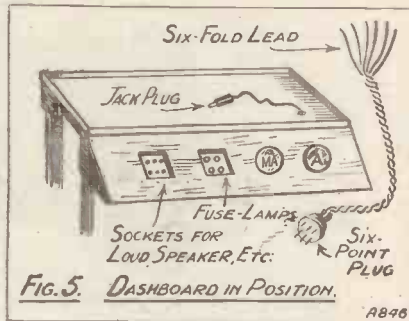 SIX-FOLD LEAD
JACK PLUG
MA
A
FUSE-LAMPS
SOCKETS FOR
LOUD SPEAKER, ETC.
SIX-
POINT
PLUG
FIG. 5. DASHBOARD IN POSITION.
A846